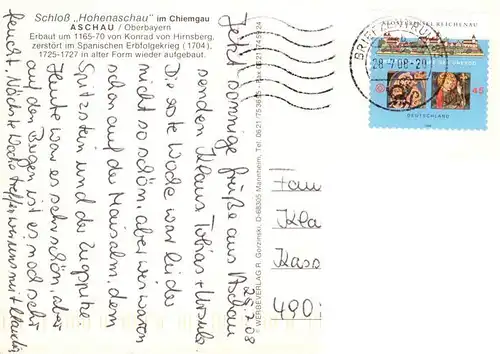 Schloß „Hohenaschau" im Chiemgau
ASCHAU / Oberbayern
Erbaut um 1165-70 von Konrad von Hirnsberg,
zerstört im Spanischen Erbfolgekrieg (1704),
1725-1727 in alter Form wieder aufgebaut.
25.7.08
Jetzt sonnige Grüße aus Aschau
senden Klaus, Tobias + Ursula.
Die erste Woche war leider
nicht so schön, aber wir waren
schon auf der Maisalm, dem
Spitzstein und der Zugspitze
Heute war es sehr schön, aber
auf den Bergen ist es noch sehr
feucht. Nächste Woche treffen wir uns mit
WERBEVERLAG R. Gorzinski, D-68305 Mannheim, Tel. 0621
KLOSTERINSEL REICHENAU
45
DEUTSCHLAND
BRIEFZENTRUM
28.7.08-20
Kla
Kass
490